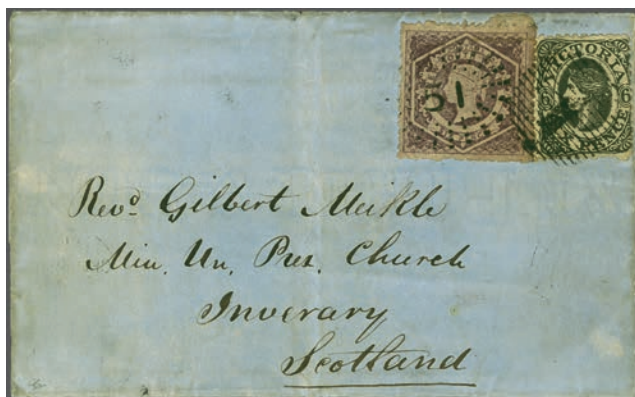 VICTORIA
PENCE
51
Revd. Gilbert Meikle
Min. Un. Pres. Church
Inverary
Scotland